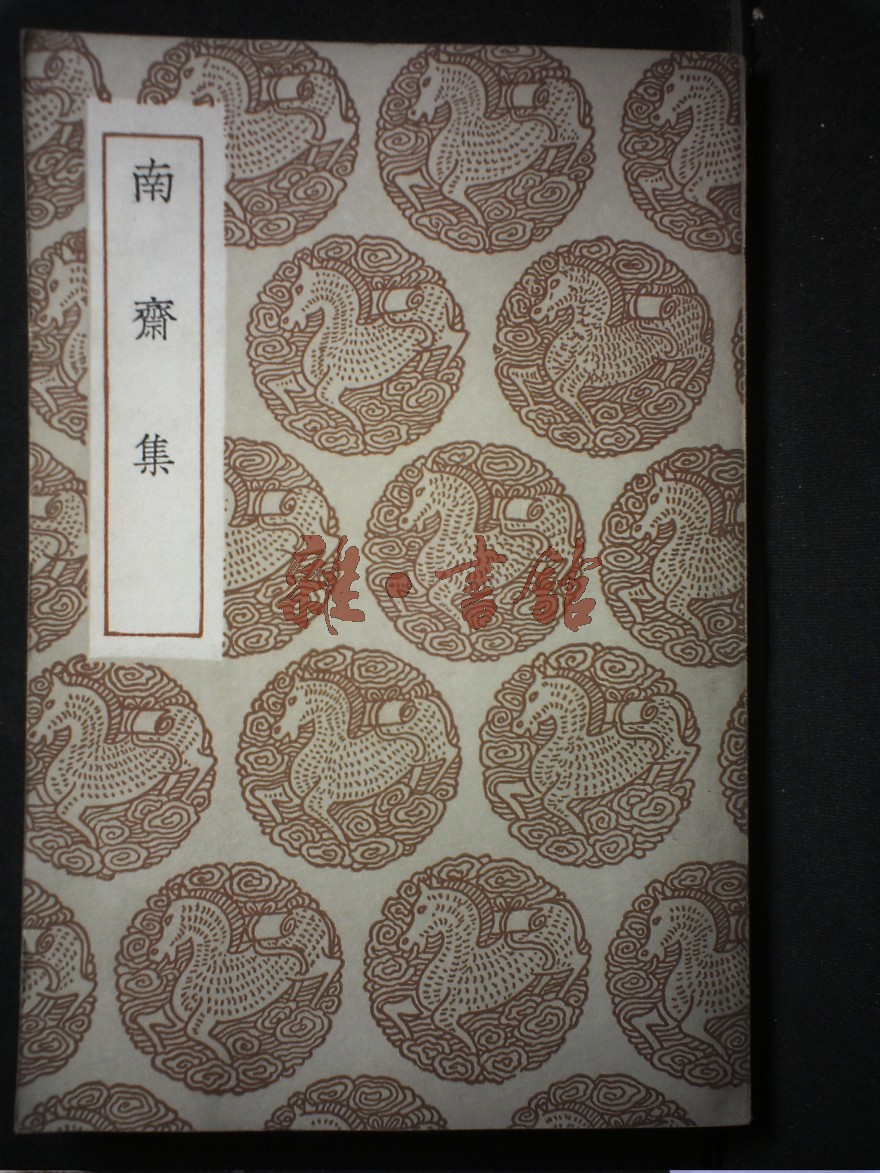 南齋集
雜·書館